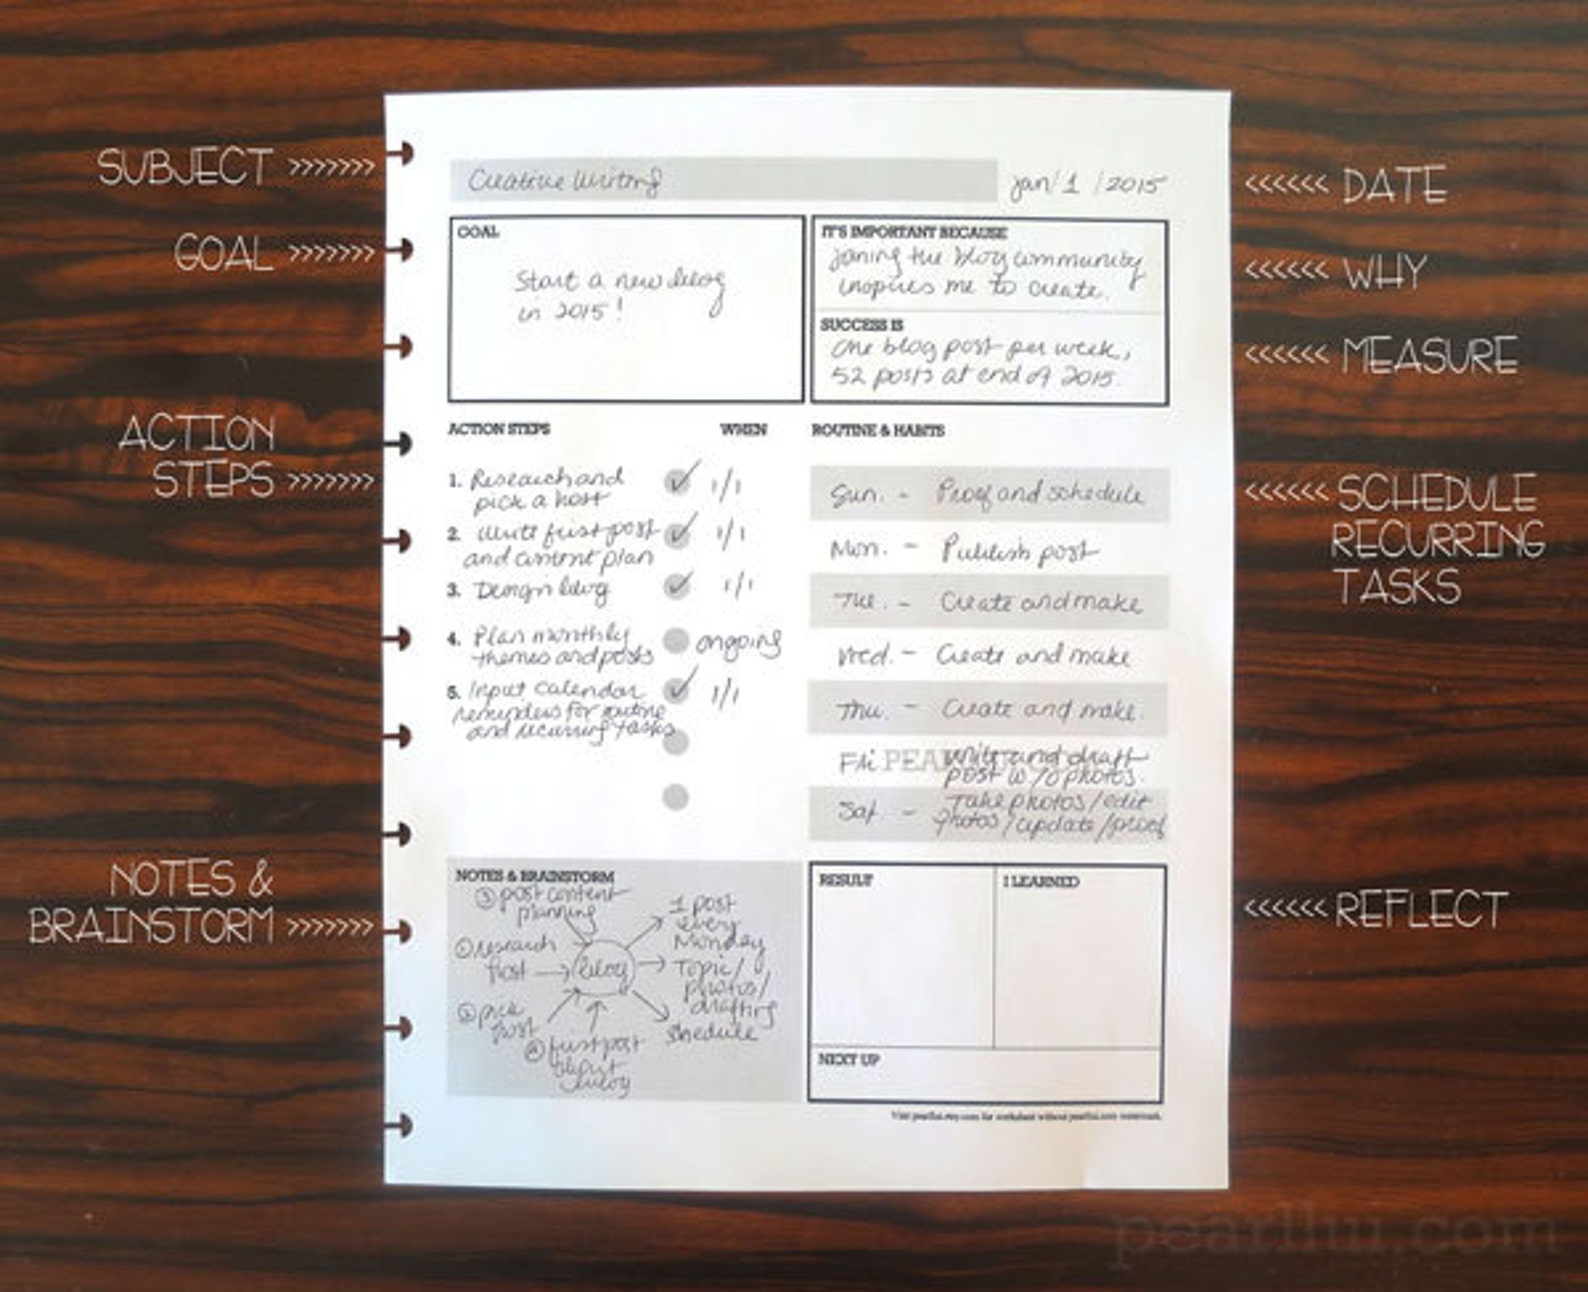 SUBJECT >>>>>>>
Creative Writing
jan/1/2015
<<<<<< DATE
GOAL >>>>>>>
GOAL
Start a new blog
in 2015!
IT'S IMPORTANT BECAUSE
joining the blog community
inspires me to create.
<<<<<< WHY
SUCCESS IS
One blog post per week,
52 posts at end of 2015.
<<<<<< MEASURE
ACTION
STEPS >>>>>>>
ACTION STEPS WHEN
1. Research and
pick a host 1/1
2. Write first post
and content plan 1/1
3. Design blog 1/1
4. Plan monthly
themes and posts ongoing
5. Input Calendar 1/1
reminders for routine
and recurring tasks
ROUTINE & HABITS
Sun. - Proof and schedule
Mon. - Publish post
Tue. - Create and make
Wed. - Create and make
Thu. - Create and make.
Fri Write and draft
post w/o photos.
Sat - Take photos/edit
photos/update/proof
<<<<<< SCHEDULE
RECURRING
TASKS
NOTES &
BRAINSTORM >>>>>>>
NOTES & BRAINSTORM
③ post content
planning
① research
host
② pick
host
④ first post
blog
1 post
every
Monday
Topic/
photos/
drafting
schedule
RESULT
I LEARNED
NEXT UP
<<<<<< REFLECT
Visit pearllui.etsy.com for worksheet without pearllui.com watermark.
pearllui.com